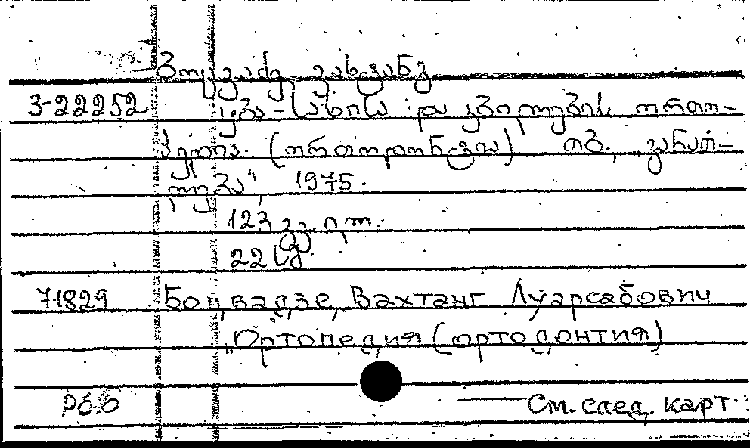 ბოლვაძე, ვახტანგ
3-22252 ყბა-სახისა და კბილების ორთო-
პედია. (ორთოდონტია) თბ., „განათ-
ლება", 1975.
123 გვ. ილ.
22 სმ.
71829 Болвадзе, Вахтанг Луарсабович
„Ортопедия (ортодонтия)
См. след. карт.